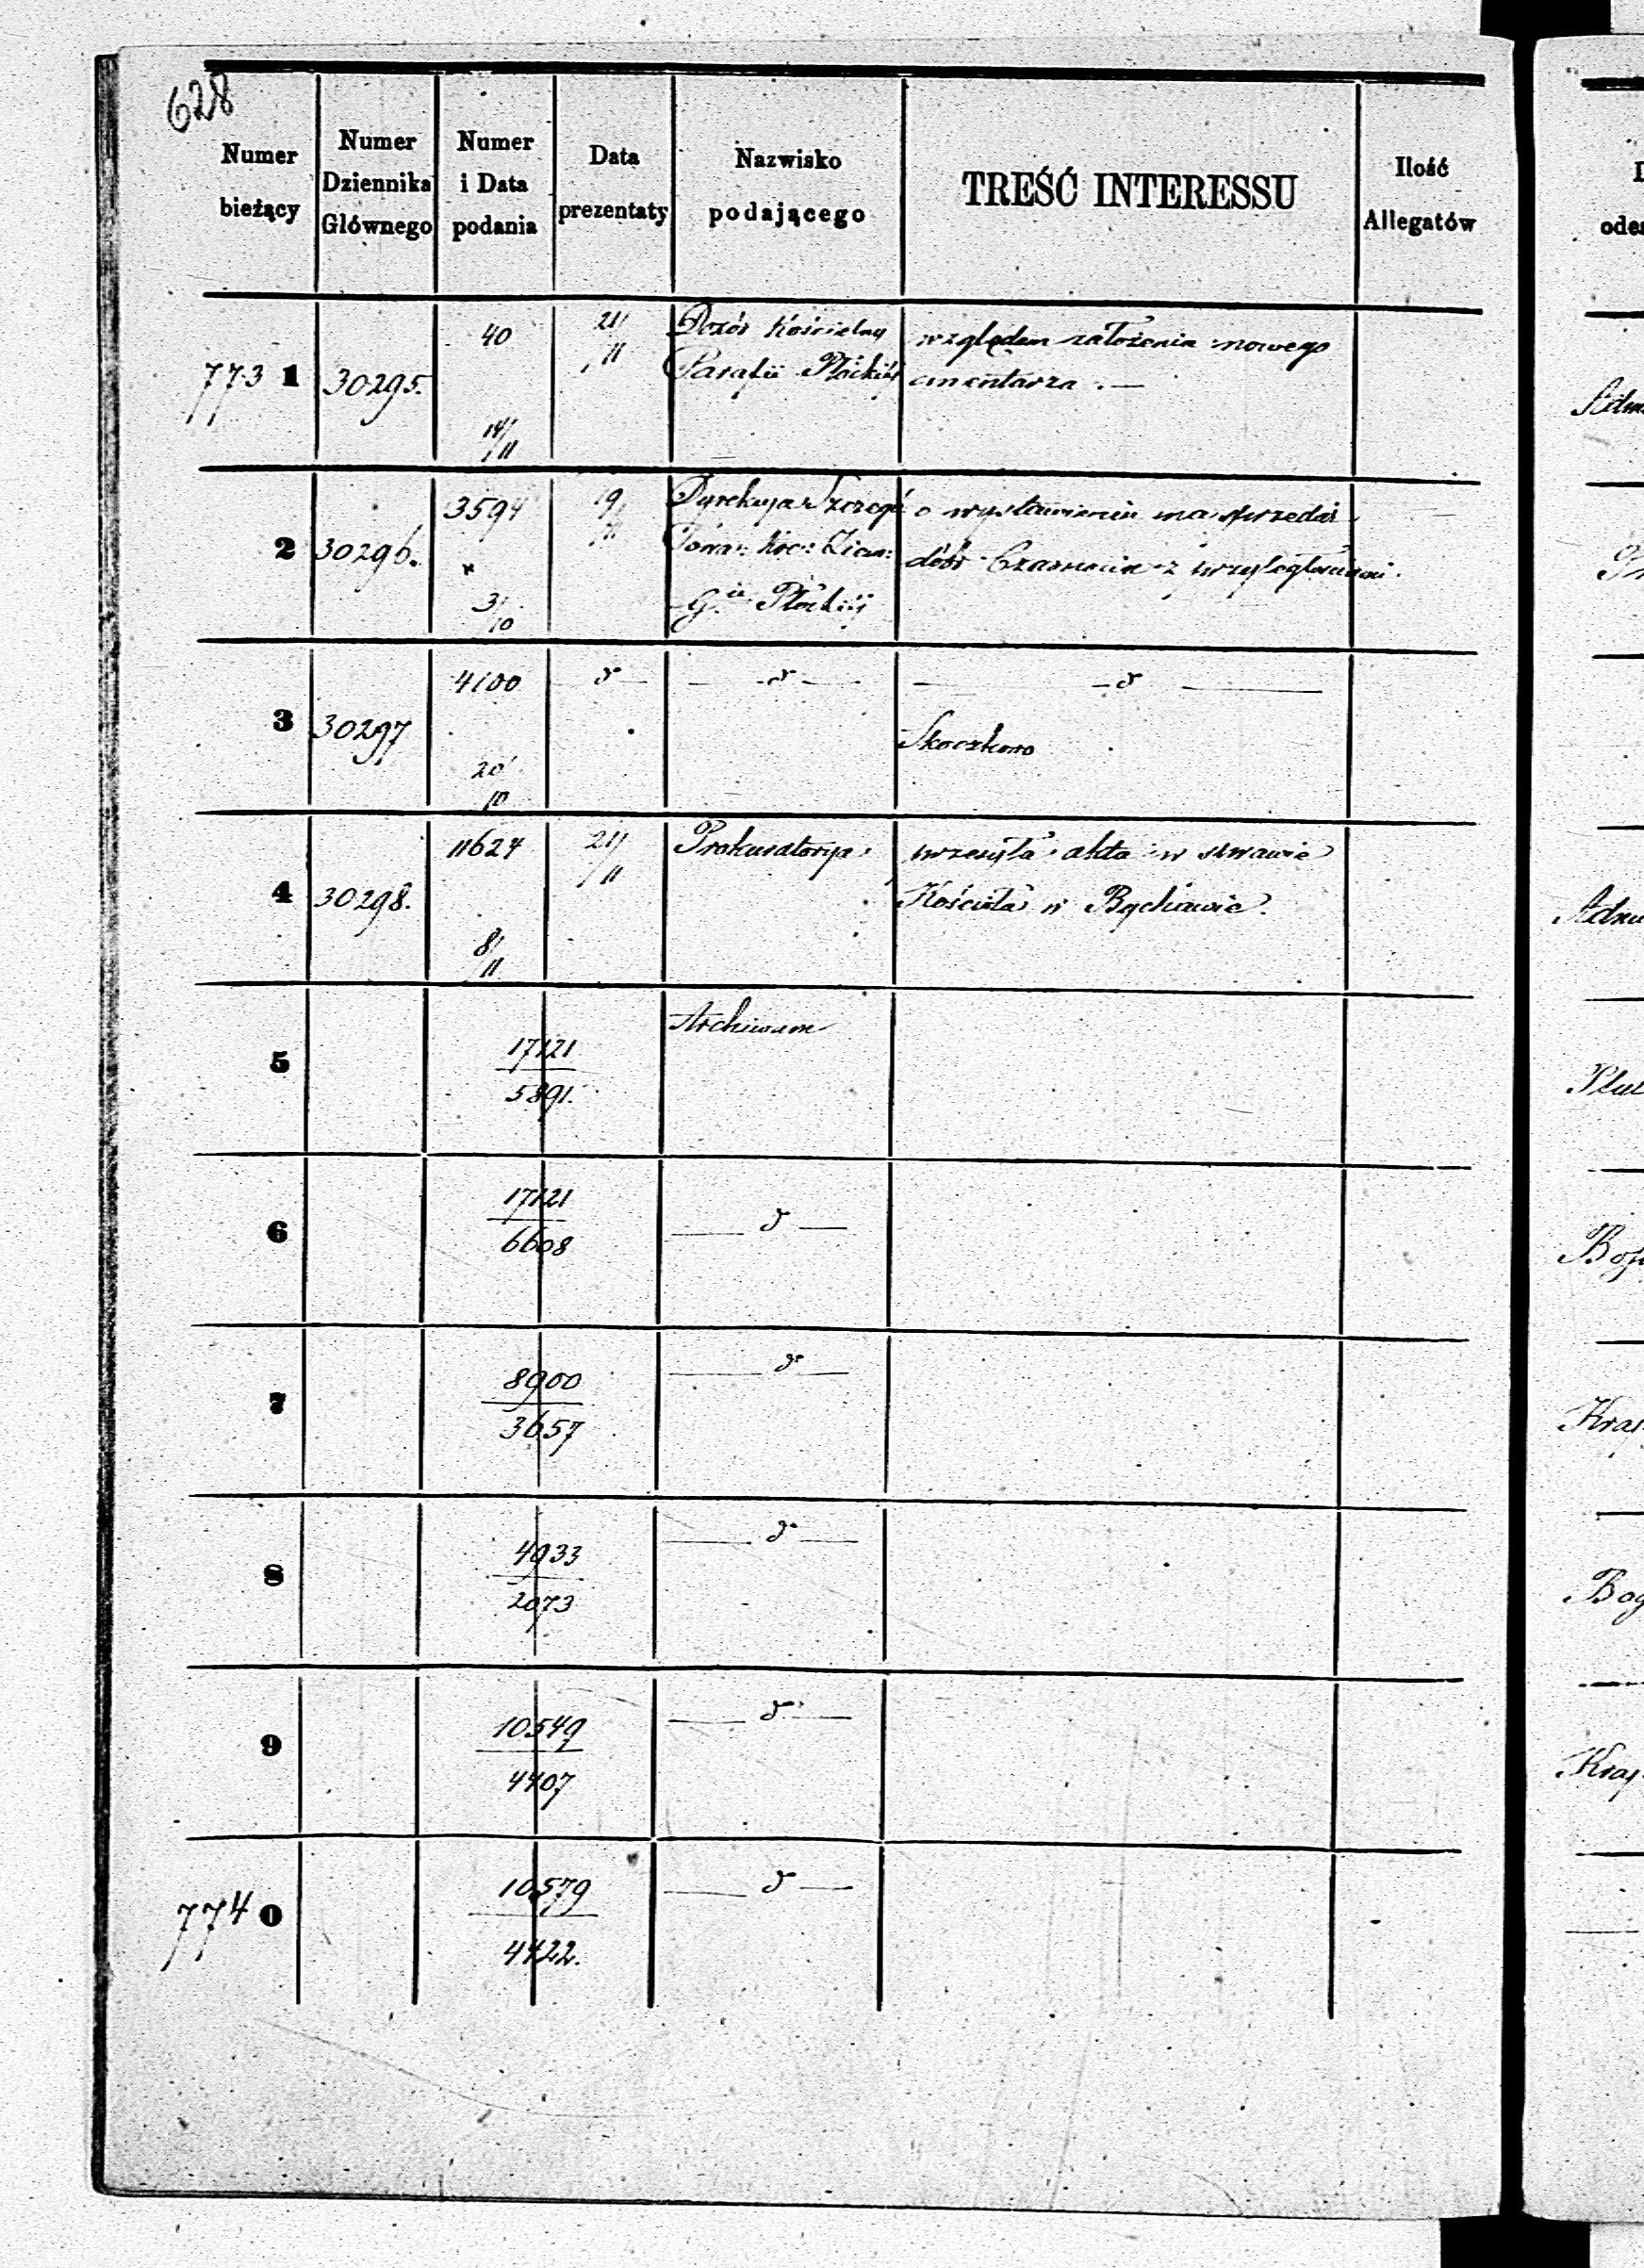 628
Numer bieżący
Numer Dziennika Głównego
Numer i Data podania
Data prezentaty
Nazwisko podającego
TREŚĆ INTERESSU
Ilość Allegatów
773 1
30295.
40
14/11
21/11
Dozór Kościelny
Parafii Płóckiéj
względem założenia nowego
cmentarza. —
2
30296.
3594
3/10
19/11
Dyrekcya Szczegó
Tow: Kre: Ziem:
G. Płockiéj
o wystawieniu na sprzedaż
dóbr z przyległościami.
3
30297
4100
20/10
— d —
— d —
— d —
Skoczkowo
4
30298.
11624
8/11
21/11
Prokuratorya
przesyła akta w sprawie
Kościoła w Bychawie.
5
17121
5891.
Archiwum
6
17121
6608
— d —
7
8900
3657
— d —
8
4933
2073
— d —
9
10549
4407
— d —
774 0
10579
4422.
— d —